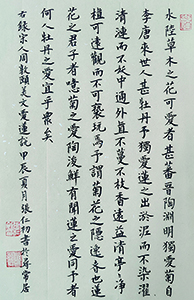 水陸草木之花可愛者甚蕃晋陶淵明獨愛菊自
李唐来世人甚牡丹予獨愛蓮之出於泥而不染濯
清漣而不妖中通外直不蔓不枝香遠益清亭亭净
植可遠觀而不可褻玩焉予謂菊花之隱逸者也蓮
花之君子者噫菊之愛陶後鮮有聞蓮之愛同予者
何人牡丹之愛宜乎衆矣
右録宋人周敦頤美文愛蓮説甲辰夏月張初書於常居